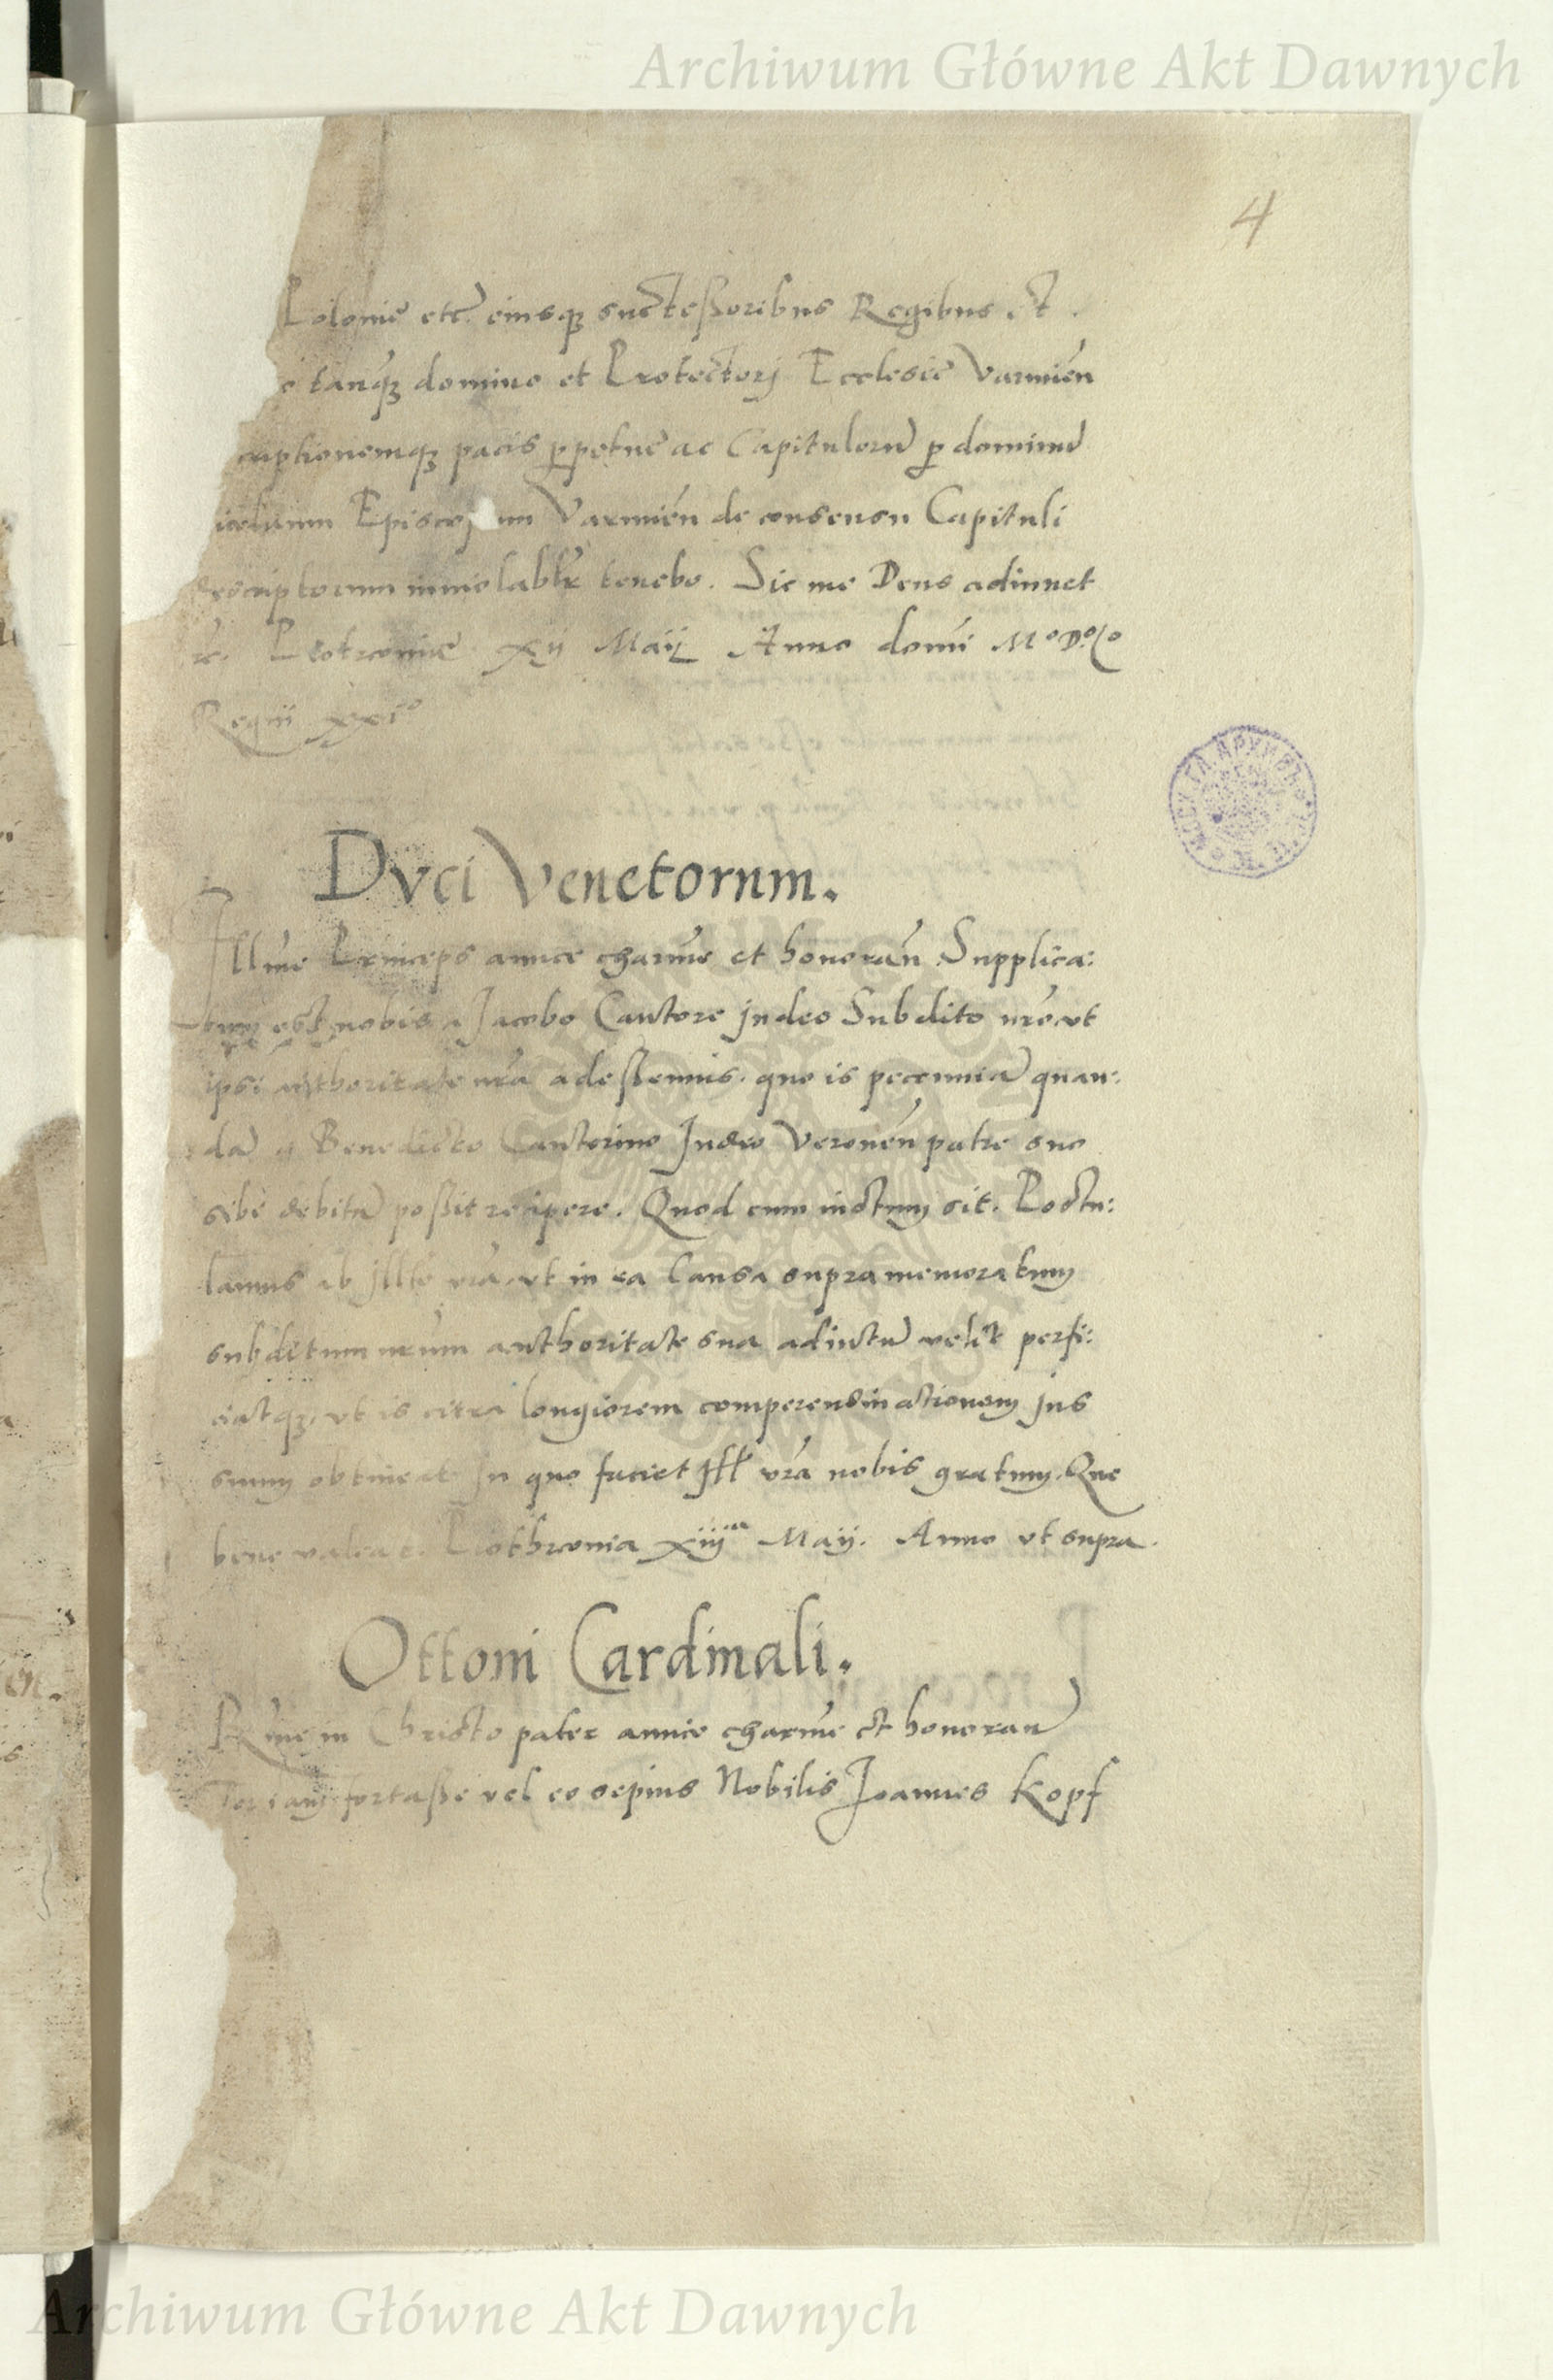 Archiwum Główne Akt Dawnych
4
Polonie etc. eiusq₃ successoribus Regibus et
tanq₃ domino et Protectorj Ecclesie Varmien
criptionemq₃ pacis ppetue ac Capitulorū p dominū
icolaum Episcopum Varmien de consensu Capituli
descriptorum inviolablr tenebo. Sic me Deus adiuuet
Petrconie xij Maij Anno domi Mº Dº Lº
Regni xxiº
Dvci Venetorum.
Illme Princeps amice charme et honoran Supplica:
tum est nobis a Jacobo Cantore Judeo Subdito nro vt
ipsi authoritate nra adessemus. quo is pecuniā quan:
dā a Benedicto Cantorino Judeo Veronen patre suo
sibi debitā possit recipere. Quod cum iustum sit. Postu:
lamus ab Illte vra vt in ea Causa supramemoratum
subditum nrum authoritate sua adiutū velit perfi:
ciatq₃ vt is citra longiorem comperendinationem jus
suum obtineat In quo faciet Ill vra nobis gratum. Que
bene valeat. Piothrconia xiiij Maij. Anno vt supra.
Ottoni Cardinali.
Rme in Christo pater amice charme et honoran
fortasse vel eo sepius Nobilis Joannes Kopf
Archiwum Główne Akt Dawnych